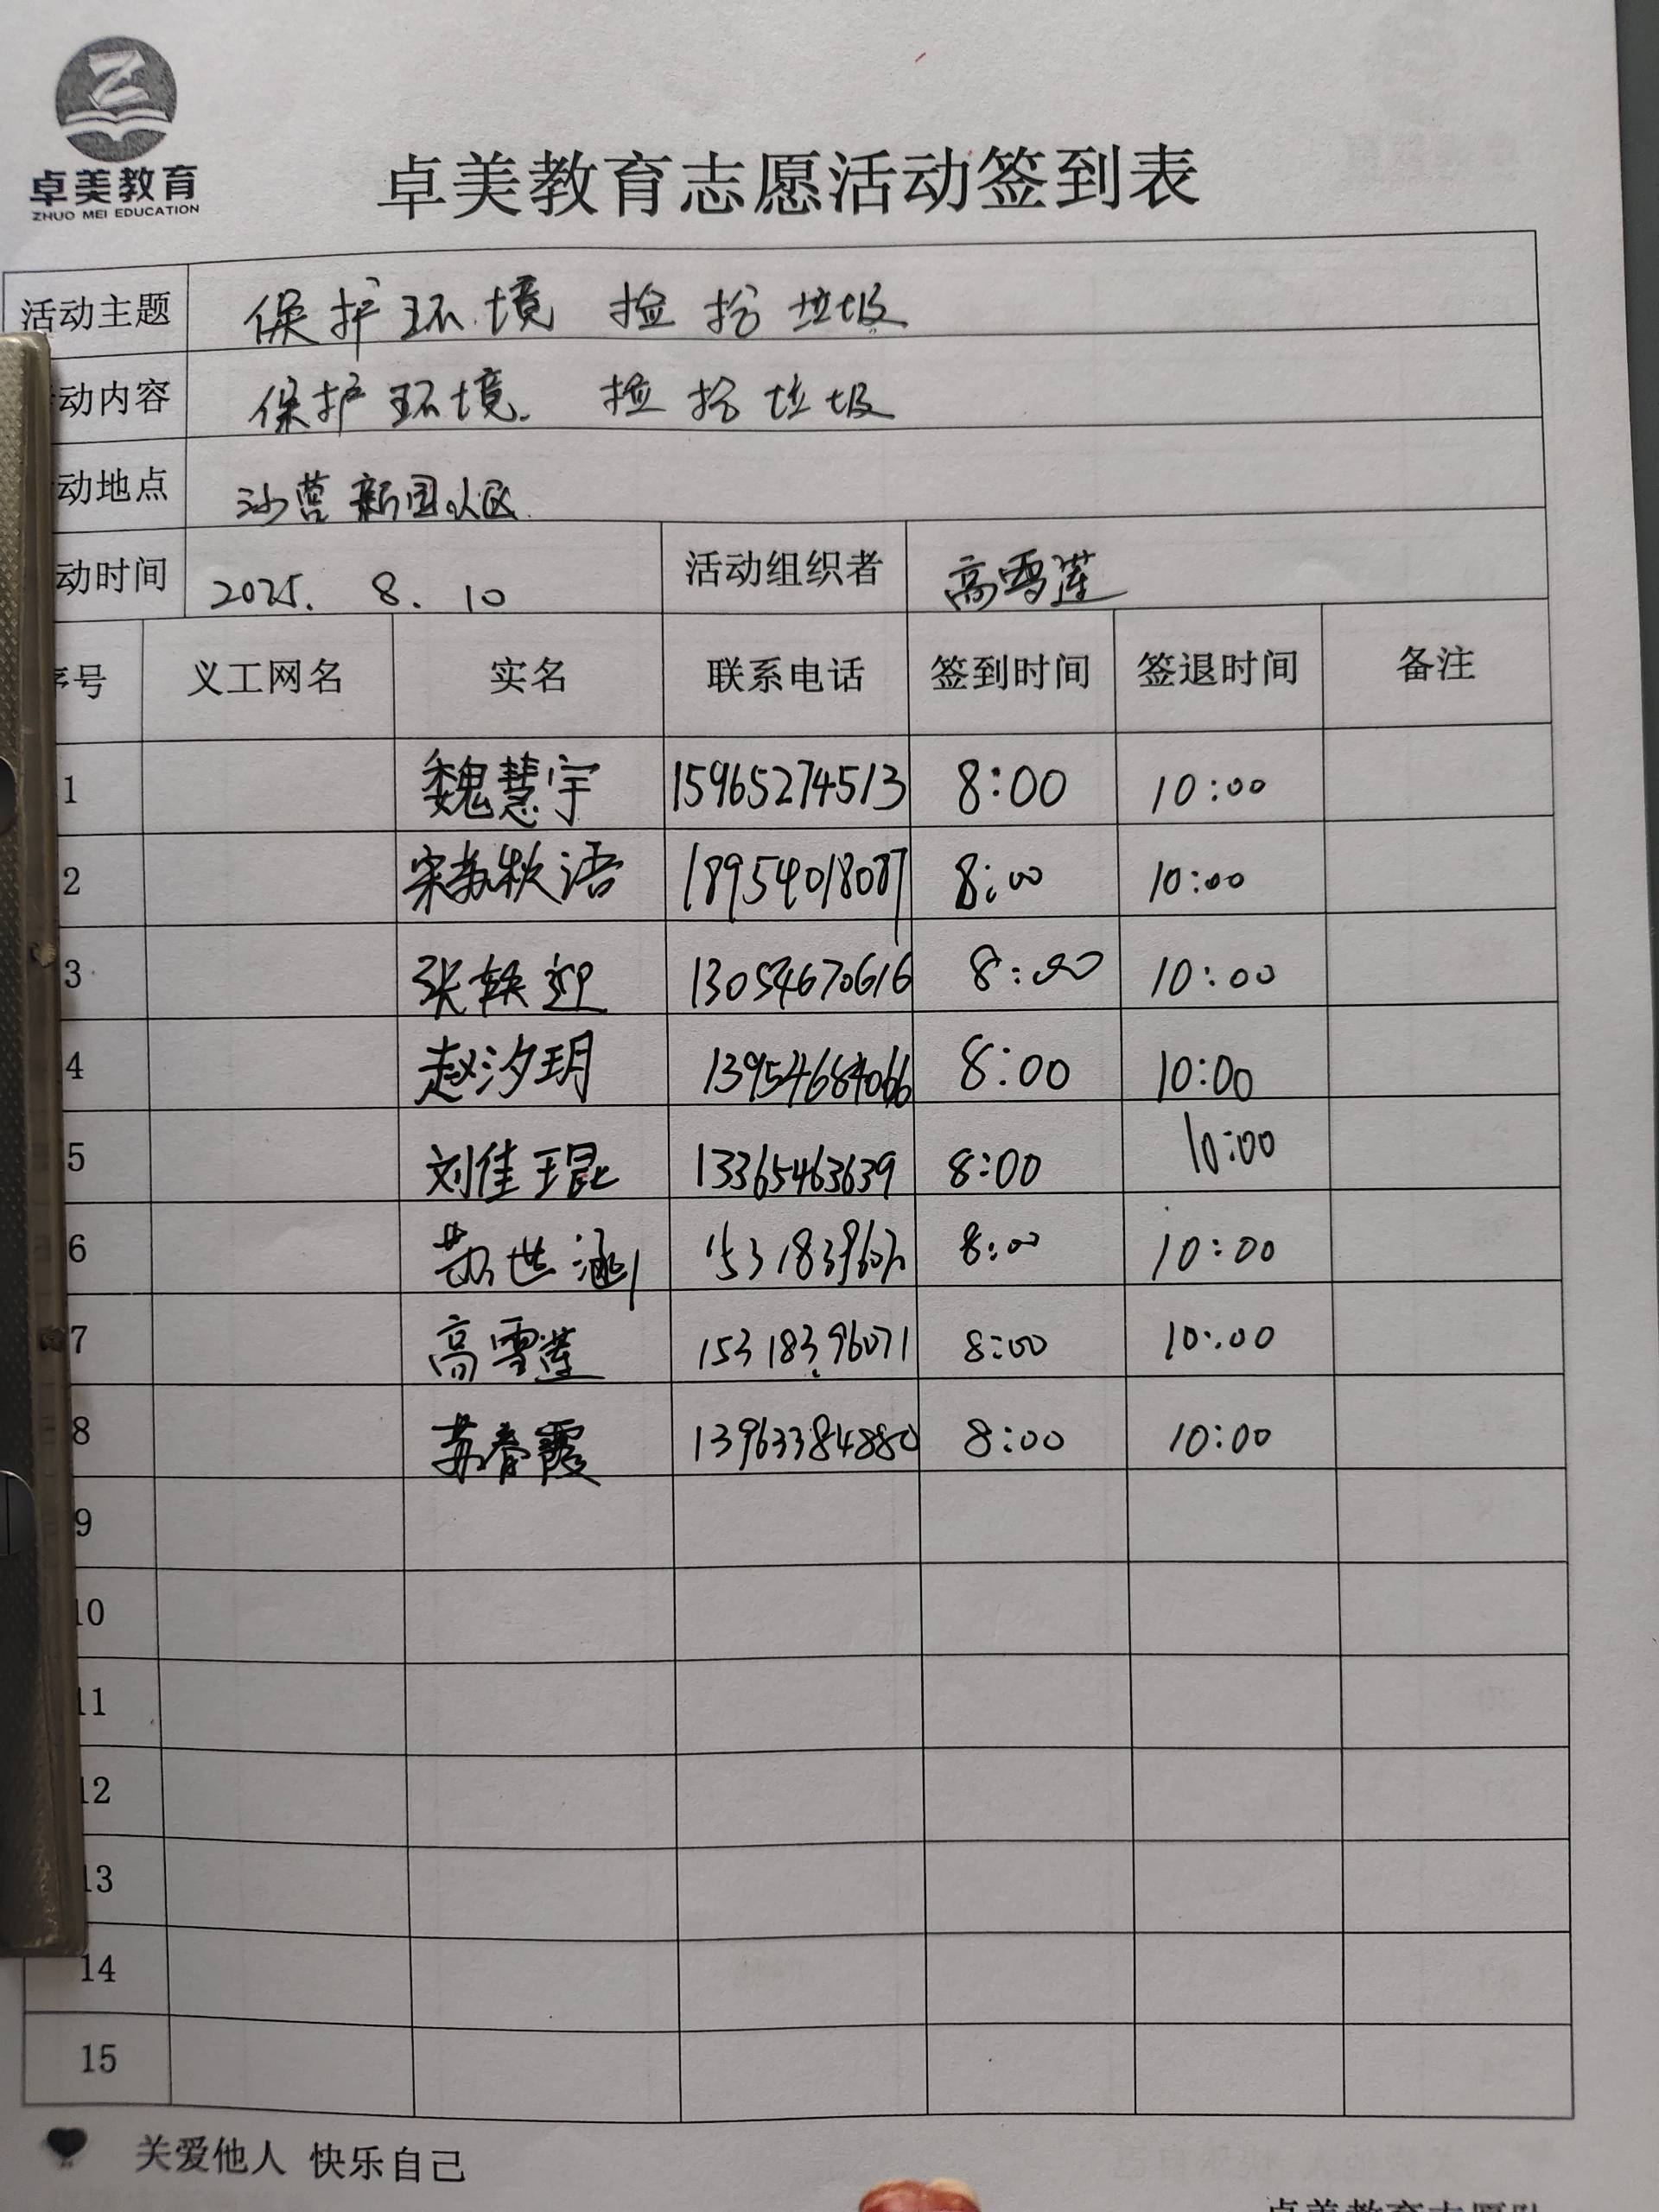 卓美教育
ZHUO MEI EDUCATION
卓美教育志愿活动签到表
活动主题 保护环境 捡拾垃圾
动内容 保护环境. 捡拾垃圾
动地点 沙营新园小区
动时间 2025. 8. 10 活动组织者 高雪莲
序号 义工网名 实名 联系电话 签到时间 签退时间 备注
1 魏慧宇 15965274513 8:00 10:00
2 宋苏秋语 18954018087 8:00 10:00
3 张轶迎 13054670616 8:00 10:00
4 赵汐玥 13954684066 8:00 10:00
5 刘佳琨 13365463639 8:00 10:00
6 苏世涵 8:00 10:00
7 高雪莲 15318396071 8:00 10:00
8 苏春霞 13963384880 8:00 10:00
9
10
11
12
13
14
15
关爱他人 快乐自己
卓美教育志愿队